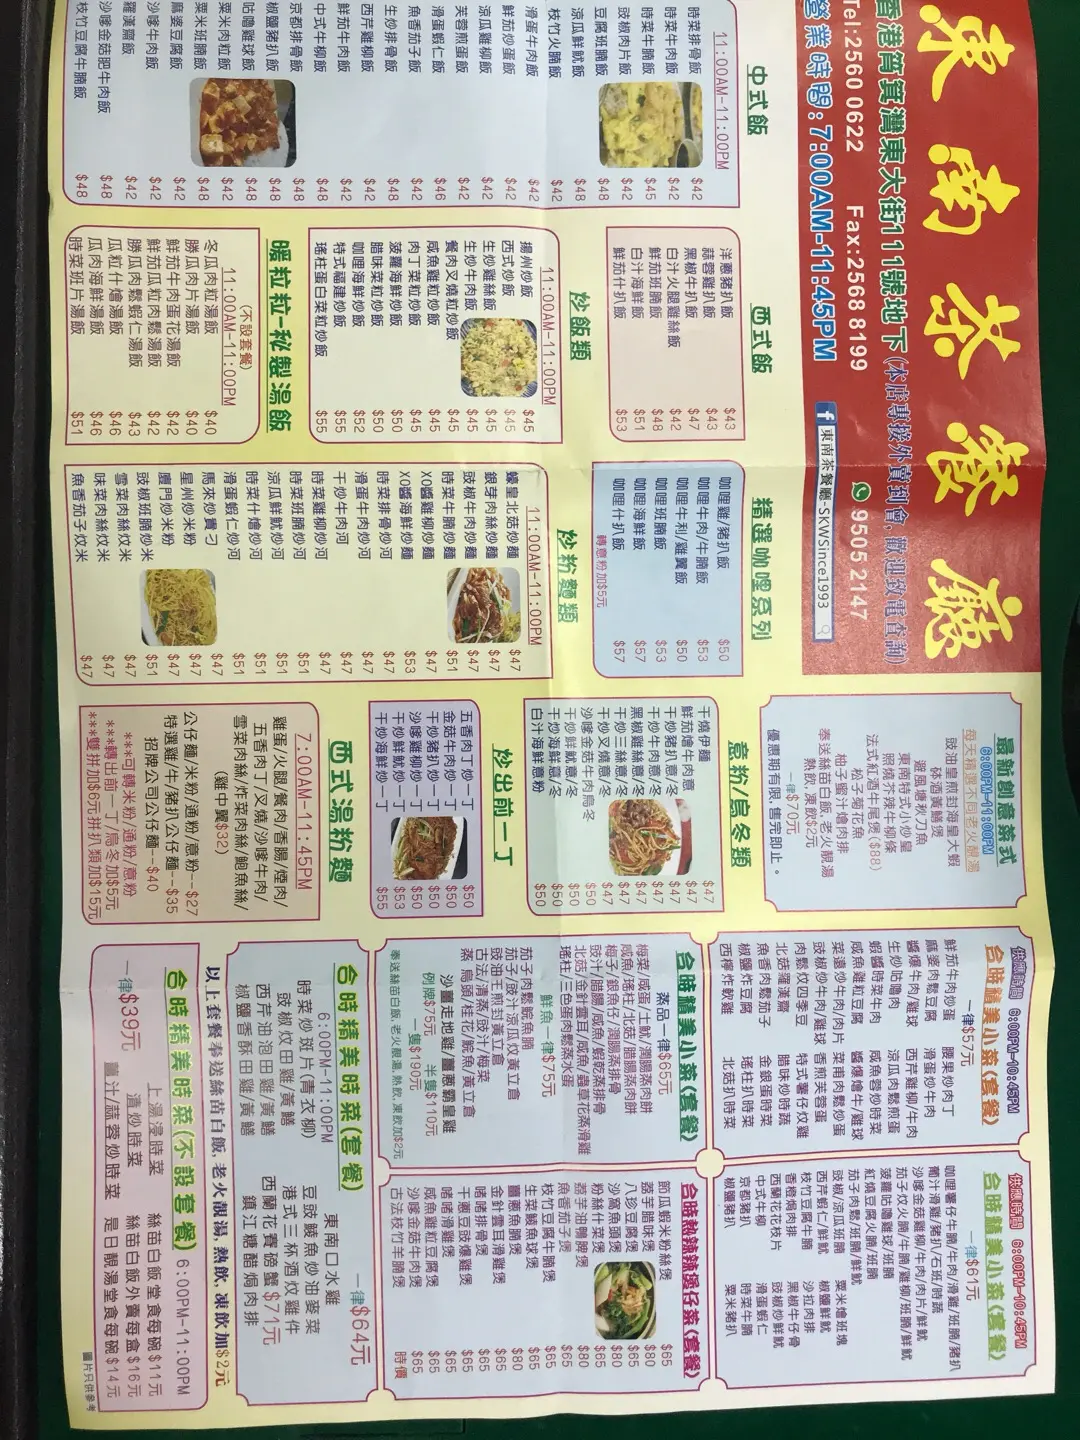 東南茶餐廳
香港筲箕灣東大街111號地下(本店專接外賣到會,歡迎致電查詢)
Tel:2560 0622 Fax:2568 8199 9505 2147
營業時間:7:00AM-11:45PM
東南茶餐廳-SKWSince1993
中式飯
11:00AM-11:00PM
時菜排骨飯 $42
時菜牛腩飯
豉椒肉片飯
豆腐班腩飯
涼瓜鮮魷飯
枝竹火腩飯
滑蛋牛肉飯
鮮茄炒蛋飯
涼瓜雞柳飯
芙蓉煎蛋飯
滑蛋蝦仁飯
魚香茄子飯
生炒排骨飯
西芹雞柳飯
鮮茄牛肉飯
中式牛柳飯
京都排骨飯
椒鹽豬扒飯
咕嚕雞球飯
粟米肉粒飯
粟米班腩飯
麻婆豆腐飯
沙嗲牛肉飯
羅漢齋飯 $42
沙嗲金菇肥牛肉飯 $48
枝竹豆腐牛腩飯 $48
西式飯
洋蔥豬扒飯 $43
蒜蓉雞扒飯 $43
黑椒牛扒飯 $47
白汁火腿雞絲飯 $42
鮮茄班腩飯 $48
白汁海鮮飯 $51
鮮茄什扒飯 $53
精選咖哩系列
咖哩雞/豬扒飯 $50
咖哩牛肉/牛腩飯 $53
咖哩牛利/雞翼飯 $50
咖哩班腩飯 $53
咖哩海鮮飯 $57
咖哩什扒飯 $57
轉意粉加$5元
炒飯類
11:00AM-11:00PM
揚州炒飯 $45
西式炒飯 $45
生炒雞絲飯 $45
生炒牛肉飯 $45
餐肉叉燒粒炒飯 $45
咸魚雞粒炒飯 $45
肉丁菜粒炒飯 $45
菠蘿海鮮炒飯 $50
腊味菜粒炒飯 $50
咖哩海鮮炒飯 $52
特式福建炒飯 $55
瑤柱蛋白菜粒炒飯 $55
暖粒粒-秘製湯飯
(不設套餐)
11:00AM-11:00PM
冬瓜肉粒湯飯 $40
勝瓜肉片湯飯 $40
鮮茄牛肉蛋花湯飯 $42
鮮茄瓜粒肉鬆湯飯 $42
勝瓜肉鬆蝦仁湯飯 $43
瓜粒什燴湯飯 $46
瓜肉海鮮湯飯 $46
時菜班片湯飯 $51
炒粉麵類
11:00AM-11:00PM
蠔皇北菇炒麵 $47
銀芽肉絲炒麵 $47
豉椒牛肉炒麵 $47
時菜牛腩炒麵 $51
XO醬雞柳炒麵 $47
XO醬海鮮炒麵 $53
時菜排骨炒河 $47
滑蛋牛肉炒河 $47
干炒牛肉河 $47
時菜雞柳炒河 $47
時菜班腩炒河 $51
涼瓜鮮魷炒河 $51
時菜什燴炒河 $51
滑蛋蝦仁炒河 $51
馬來炒貴刁 $47
星州炒米粉 $47
廈門炒米粉 $47
豉椒班腩炒米 $51
雪菜肉絲炆米 $47
味菜肉絲炆米 $47
魚香茄子炆米 $47
最新創意菜式
6:00PM-11:00PM
每天精選不同老火靚湯
豉油皇煎封海皇大蝦
砵酒黃鱔煲
避風塘秋刀魚
東南特式小炒皇
照燒芥辣牛柳條
法式紅酒牛尾煲($88)
松子菊花魚
柚子蜜汁燴肉排
一律$70元
奉送絲苗白飯,老火靚湯
熱飲,凍飲$2元
優惠期有限,售完即止。
意粉/烏冬類
干燒伊麵 $47
鮮茄燴牛肉意 $47
干炒豬扒意/冬 $47
干炒牛肉意/冬 $47
黑椒雞絲意/冬 $47
干炒三絲意/冬 $47
干炒叉燒意/冬 $47
沙嗲金菇牛肉烏冬 $50
干炒鮮魷意/冬 $50
干炒海鮮意粉 $50
白汁海鮮意粉 $50
炒出前一丁
五香肉丁炒一丁 $50
金菇牛肉炒一丁 $50
干炒豬扒炒一丁 $50
沙嗲雞柳炒一丁 $50
干炒鮮魷炒一丁 $53
干炒海鮮炒一丁 $55
西式湯粉麵
7:00AM-11:45PM
雞蛋/火腿/餐肉/香腸/煙肉/
五香肉丁/叉燒/沙嗲牛肉/
雪菜肉絲/炸菜肉絲/鮑魚絲/
(雞中翼$32)
公仔麵/米粉/通粉/意粉--$27
特選雞/牛/豬扒公仔麵--$35
招牌公司公仔麵--$40
***可轉米粉/通粉/意粉
***轉出前一丁/烏冬加$5元
***雙拼加$6元,拼扒類加$15元
供應時間 6:00PM-10:45PM
合時精美小菜(套餐)
一律$57元
鮮茄牛肉炒蛋 腰果炒肉丁
麻婆肉鬆豆腐 滑蛋炒牛肉
醬爆牛肉/雞球 西芹雞柳/牛肉
生炒咕嚕肉 涼瓜肉鬆煎蛋
蝦醬時菜牛肉 咸魚蓉炒時菜
咸魚雞粒豆腐 醬爆燴牛/雞球
菜遠炒牛肉/肉片 菜甫肉鬆炒蛋
豉椒炒牛肉/雞球 香煎芙蓉蛋
肉鬆炆四季豆 特式薯仔炆雞
北菇羅漢齋 腊味炒時蔬
魚香肉鬆茄子 金銀蛋時菜
椒鹽炸豆腐 瑤柱扒時菜
西檸炸軟雞 北菇扒時菜
供應時間 6:00PM-10:45PM
合時精美小菜(套餐)
一律$61元
咖哩薯仔牛腩/牛肉/滑雞/班腩/豬扒
葡汁滑雞/豬扒/石班/時蔬
沙嗲金菇雞柳/牛肉/肉片/鮮魷
茄子炆火腩/牛腩/雞柳/班腩/鮮魷
菠蘿咕嚕雞球/班腩
紅燒豆腐火腩/班腩
茄子肉鬆/班腩/鮮魷
豉椒/涼瓜班腩 粟米燴班塊
西芹蝦仁/鮮魷 椒鹽鮮魷
枝竹豆腐牛腩 沙拉肉排
香橙焗肉排 黑椒牛仔骨
西蘭花花枝片 豉椒炒鮮魷
中式牛柳 滑蛋蝦仁
京都豬扒 時菜牛腩
椒鹽豬扒 粟米豬扒
合時精美小菜(套餐)
蒸品一律$65元
梅菜/咸蛋/土魷/潤腸蒸肉餅
咸魚/瑤柱/北菇/腊腸蒸肉餅
梅子/銀魚仔/潤腸蒸排骨
豉汁/腊腸/咸魚/蝦乾蒸排骨
北菇/金針雲耳/咸魚/蟲草花蒸滑雞
瑤柱/三色蛋肉鬆蒸水蛋
鮮魚一律$75元
茄子肉鬆鯇魚腩
茄子/豉汁/涼瓜炆黃立倉
豉油王煎封黃立倉
古法/清蒸/豉汁/梅菜
蒸 烏頭/桂花/鯇魚/黃立倉
沙薑走地雞/薑蔥霸皇雞
例牌$75元 半隻$110元
一隻$190元
奉送絲苗白飯,老火靚湯,熱飲,凍飲加$2元
合時熱辣辣煲仔菜(套餐)
節瓜蝦米粉絲煲 $65
荔芋腊味煲 $80
八珍豆腐煲 $65
沙窩魚頭煲 $80
粉絲什菜煲 $65
荔芋油鴨髀煲 $80
魚香茄子煲 $65
枝竹豆腐牛腩煲 $65
生菜鯪魚球煲 $65
薑蔥魚腩煲 $80
金針雲耳滑雞煲 $65
啫啫排骨煲 $65
干蔥豆豉爆雞煲 $65
啫啫滑雞煲 $65
咸魚雞粒豆腐煲 $65
沙嗲金菇牛肉煲 $65
古法枝竹羊腩煲 時價
合時精美時菜(套餐)
6:00PM-11:00PM
一律$64元
時菜炒斑片(青衣柳) 東南口水雞
豉椒炆田雞/黃鱔 豆豉鯪魚炒油麥菜
西芹油泡田雞/黃鱔 港式三杯酒炆雞件
椒鹽香酥田雞/黃鱔 西蘭花賽磅蟹$71元
鎮江糖醋焗肉排
以上套餐奉送絲苗白飯,老火靚湯,熱飲,凍飲加$2元
合時精美時菜(不設套餐) 6:00PM-11:00PM
一律$39元
上湯浸時菜 絲苗白飯堂食每碗$11元
清炒時菜 絲苗白飯外賣每盒$16元
薑汁/蒜蓉炒時菜 是日靚湯堂食每碗$14元
圖片只供參考